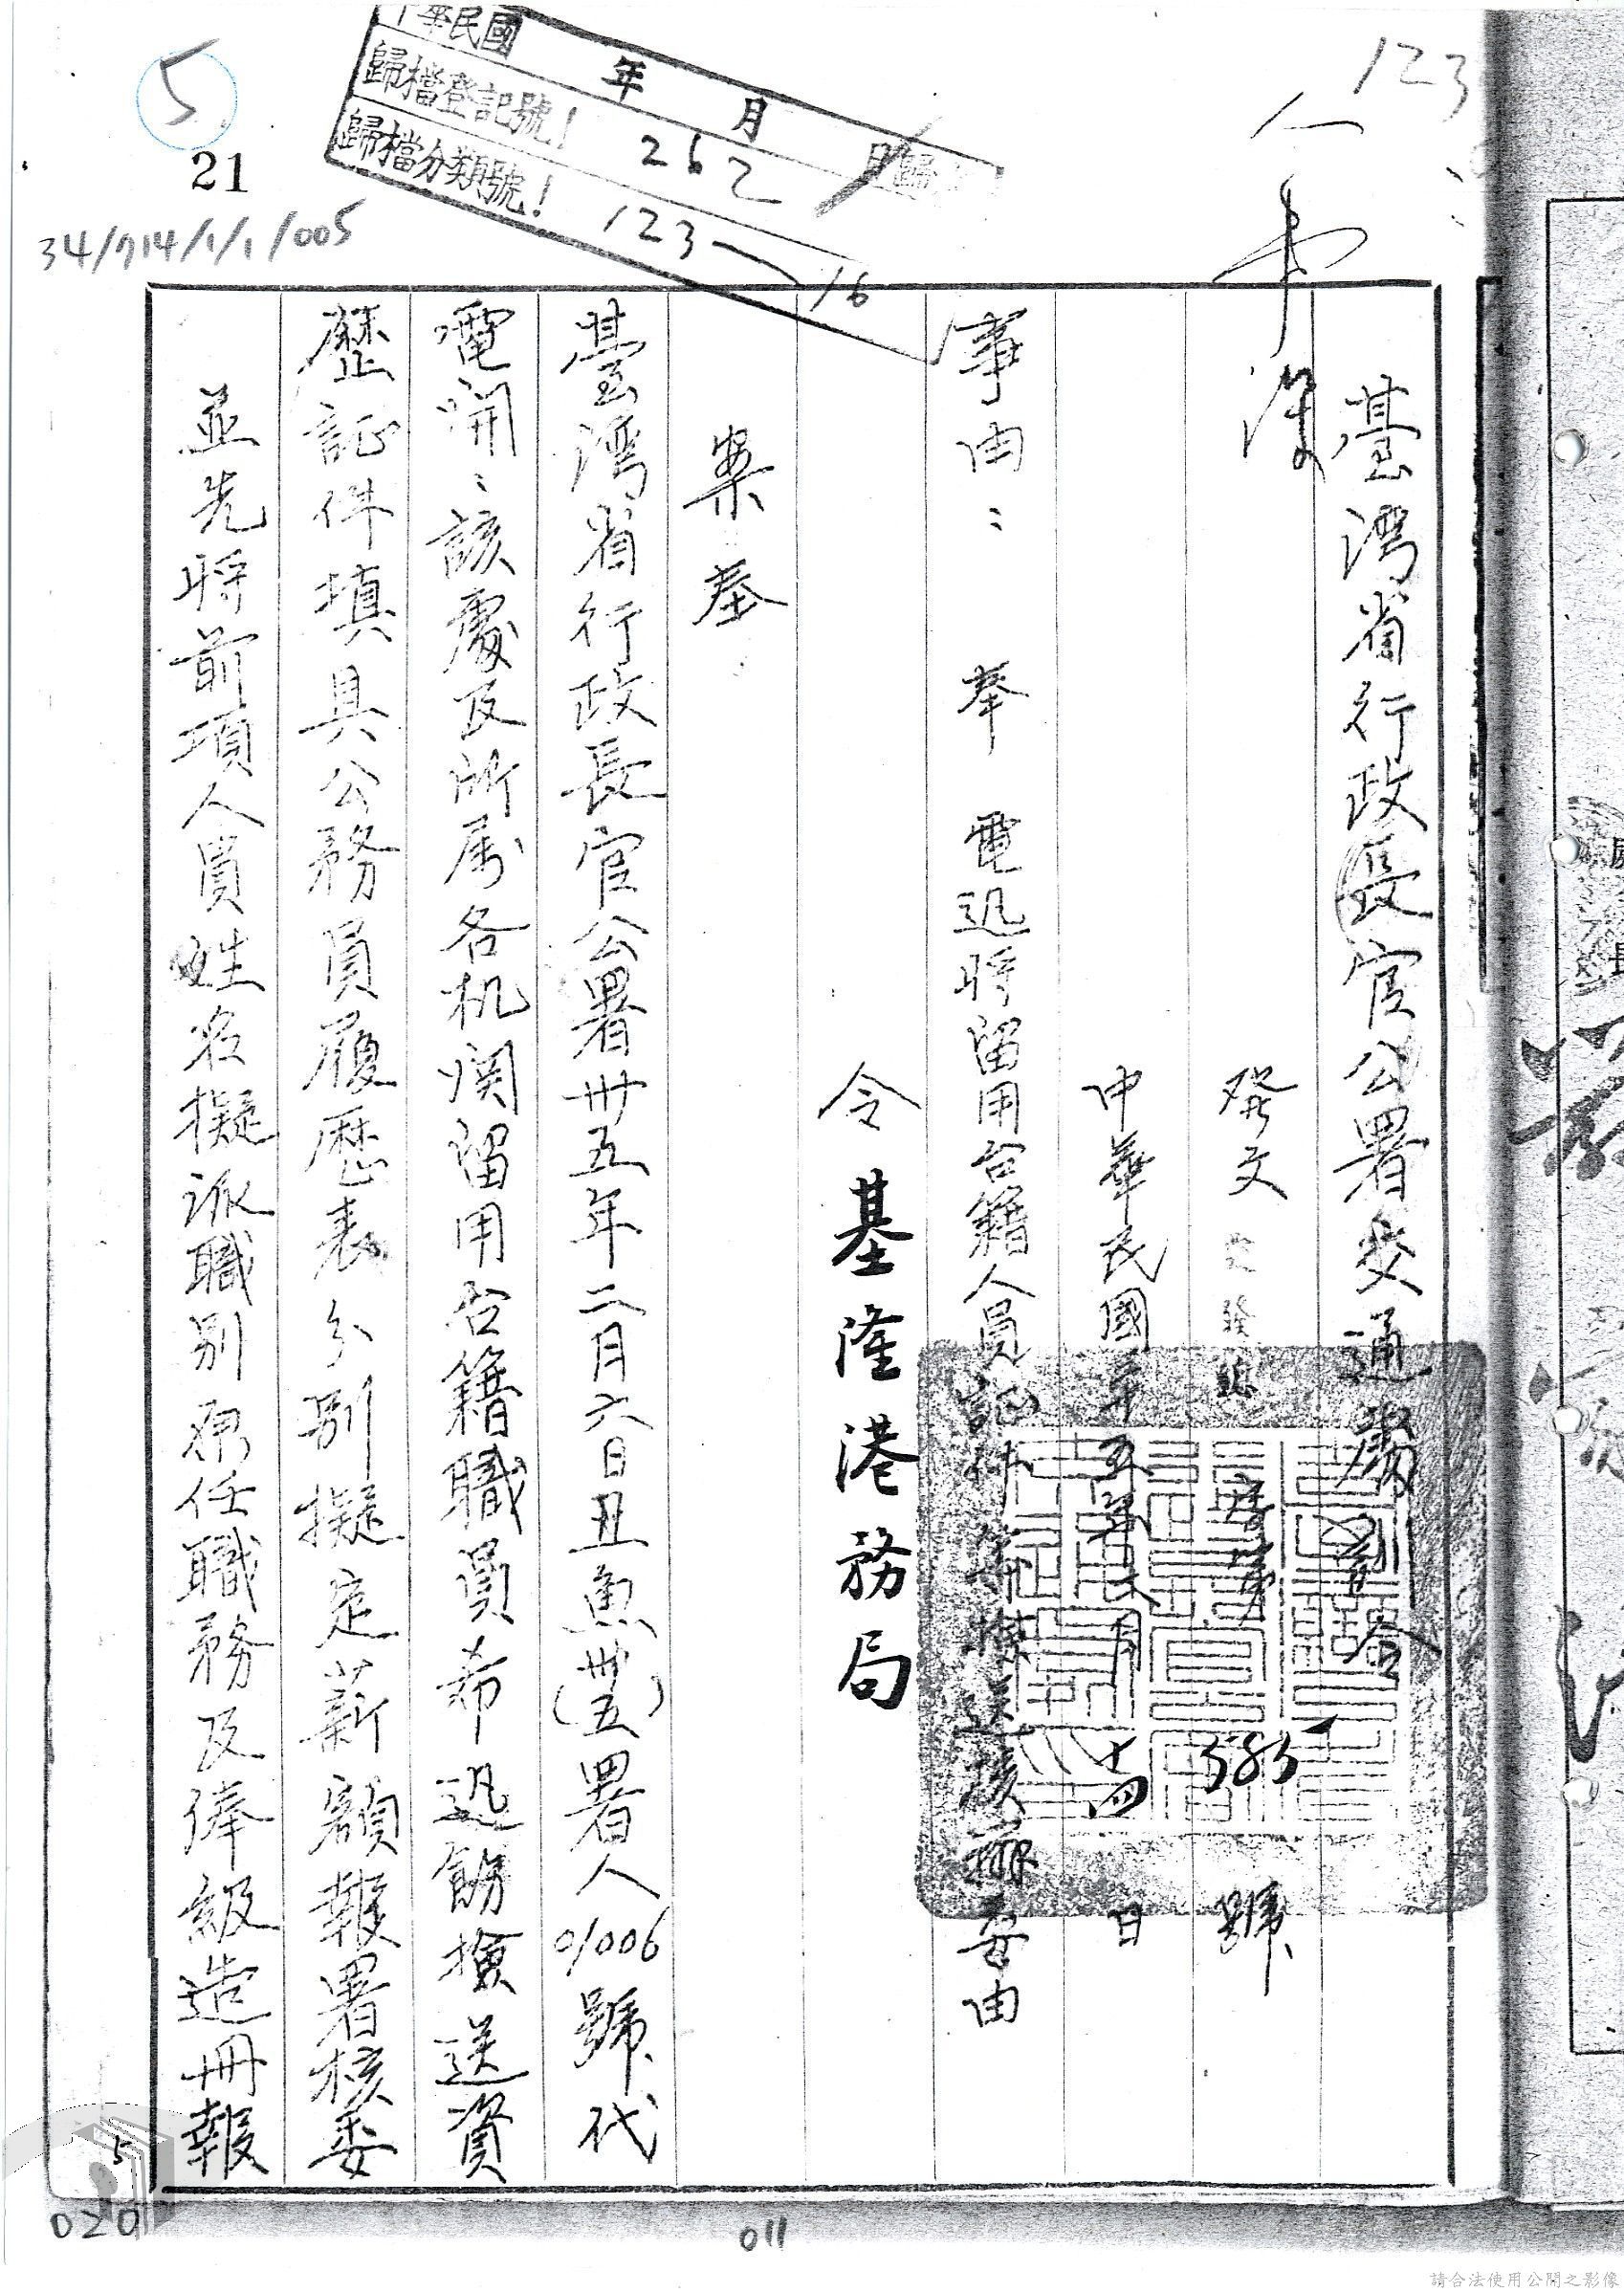 5
21
34/714/1/1/005
中華民國 年 月 日歸
歸檔登記號! 262
歸檔分類號! 123—16
123
人
臺湾省行政長官公署交通處
發文 字第 585 號
中華民國卅五年 月十四日
事由:奉 電迅將留用台籍人員証件 送核辦要由
令基隆港務局
案奉
臺湾省行政長官公署卅五年二月六日丑魚(卅五)署人01006號代
電開:該處及所属各机関留用台籍職員希迅飭撿送資
歷証件填具公務員履歷表分別擬定薪額報署核委
並先將前項人員姓名擬派職別原任職務及俸級造冊報
5
020
011
請合法使用公開之影像